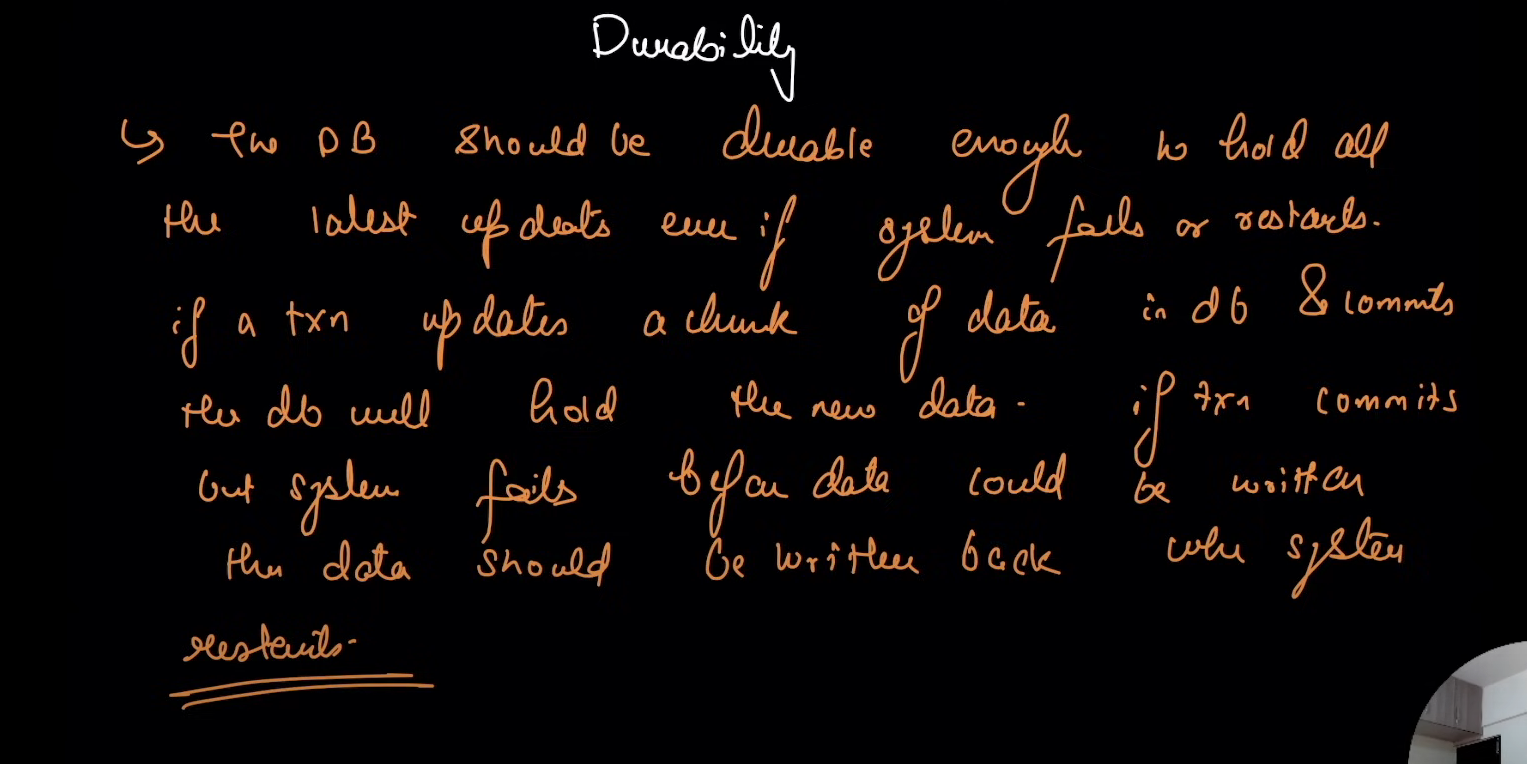 Durability
↳ The DB should be durable enough to hold all
the latest updats even if system fails or restarts.
if a txn updates a chunk of data in db & commits
the db will hold the new data. if txn commits
but system fails before data could be written
then data should be written back when system
restarts.